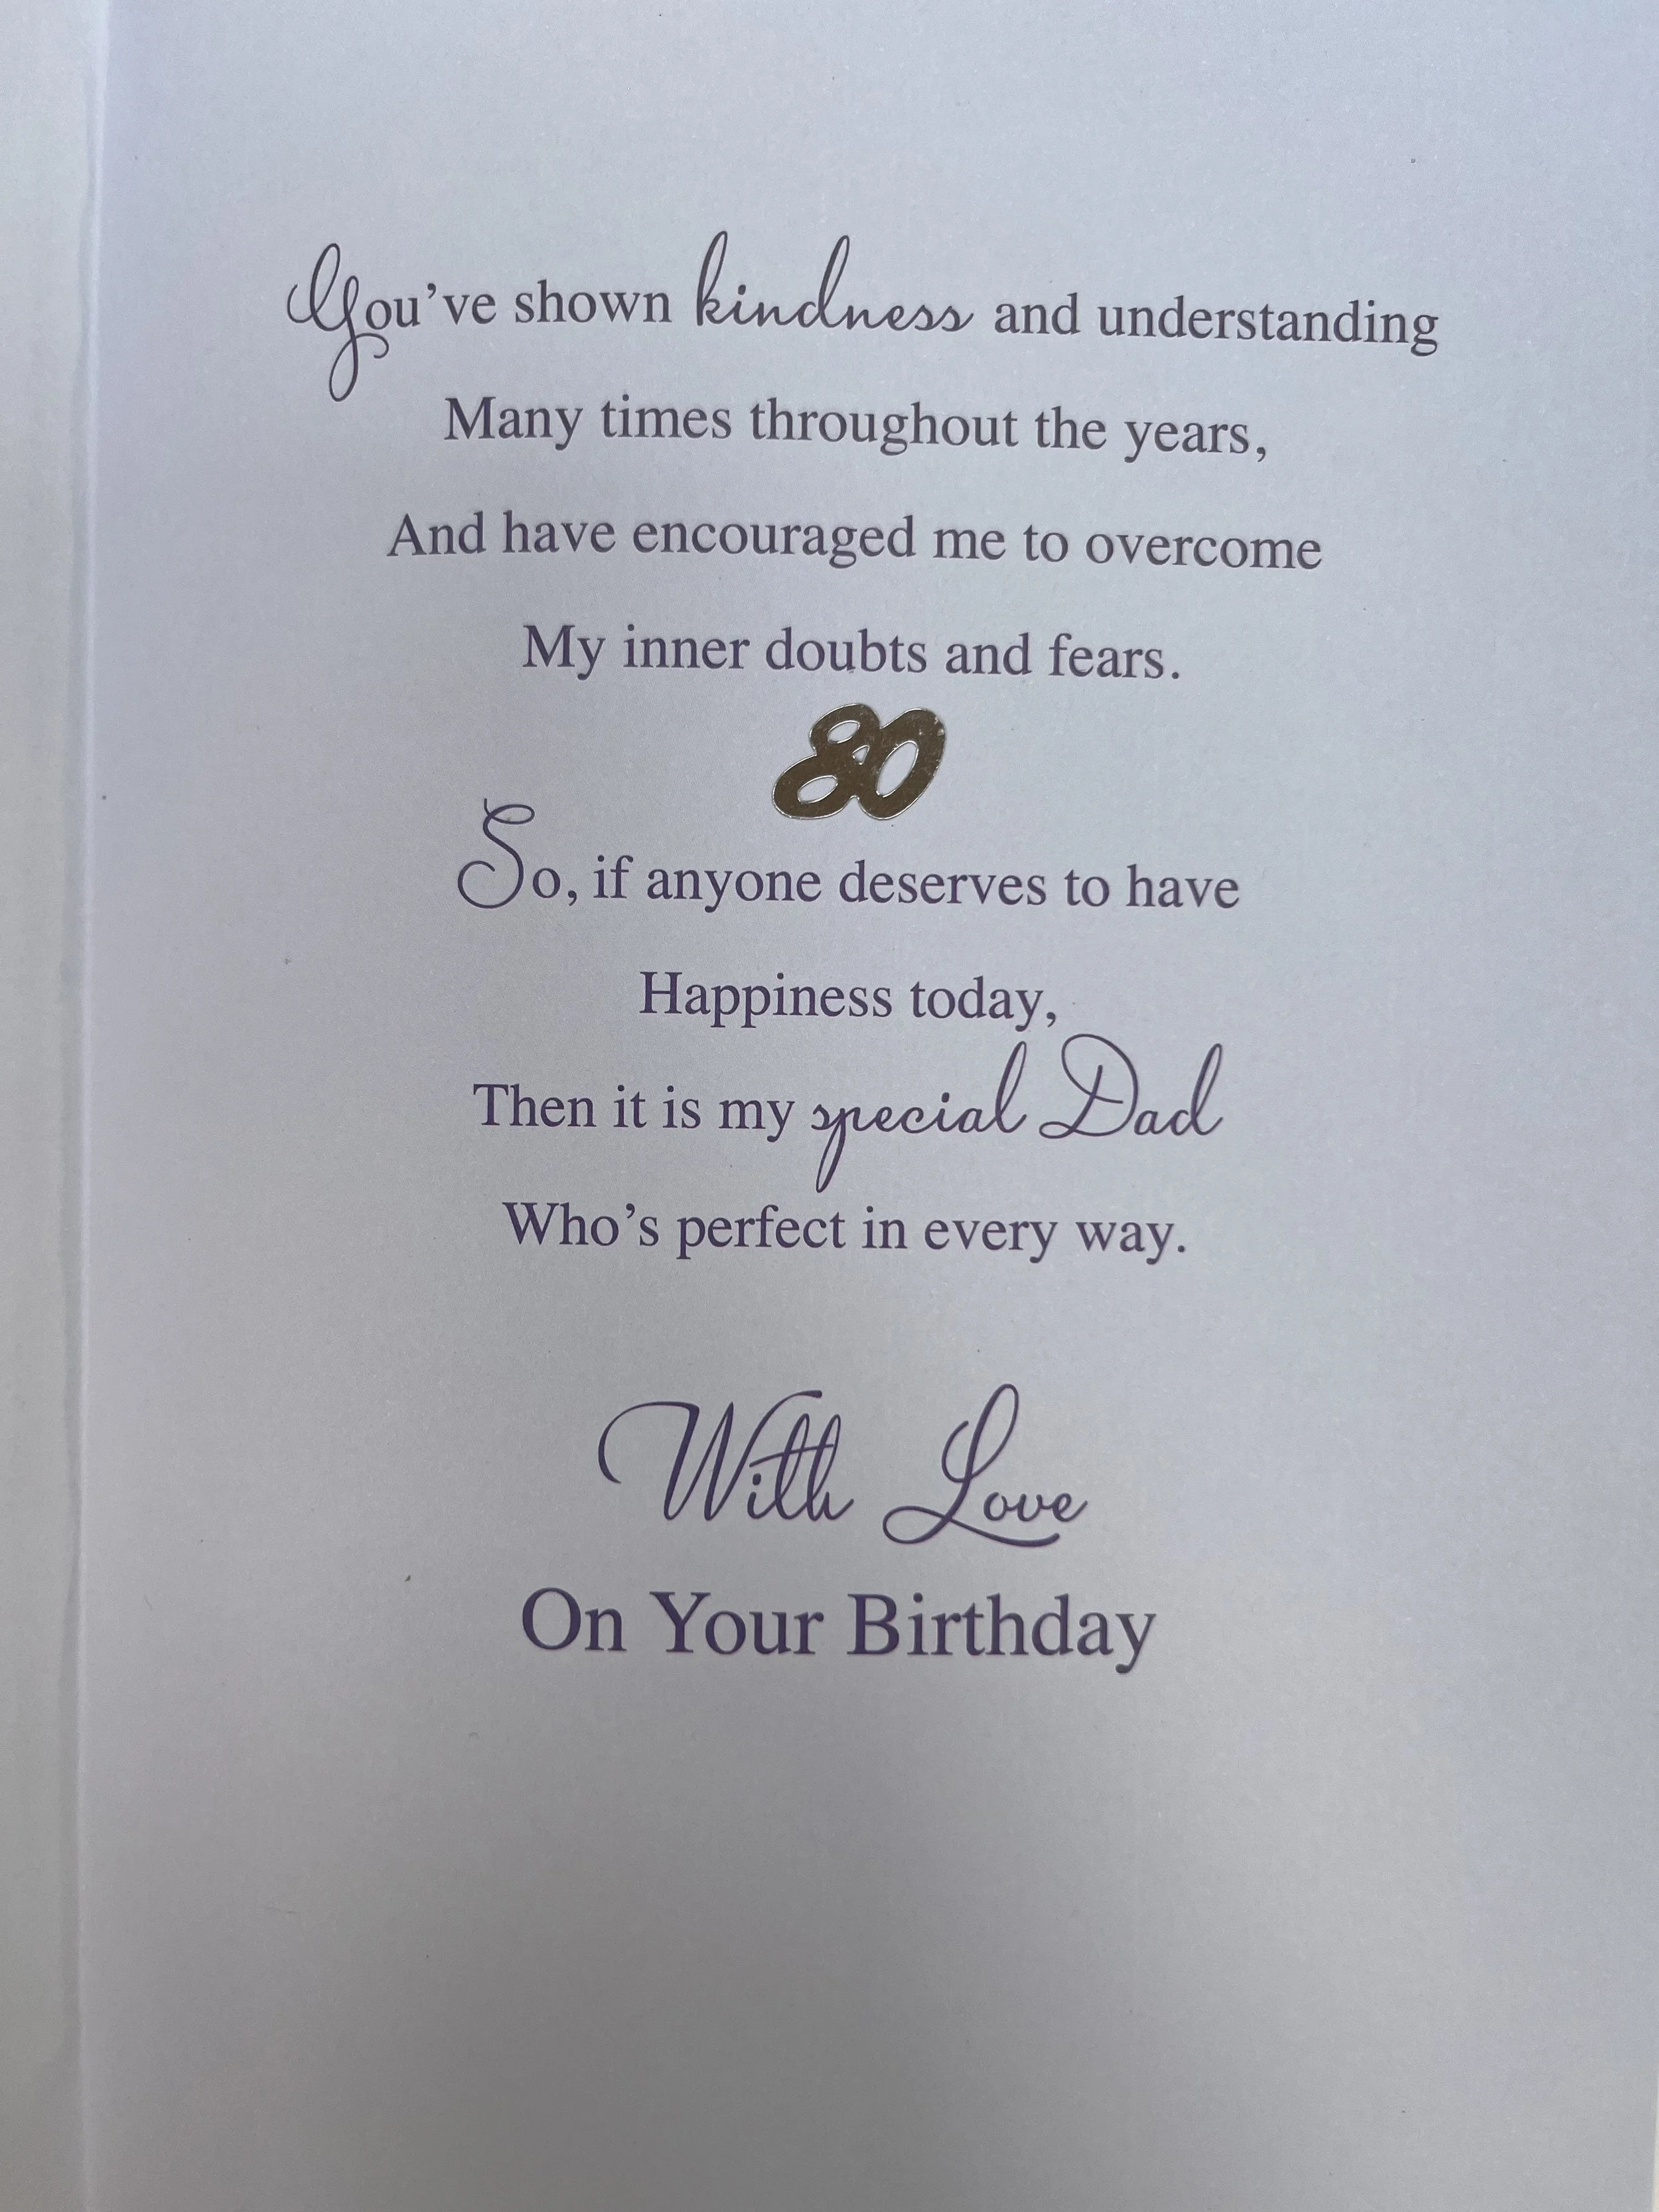 You've shown kindness and understanding
Many times throughout the years,
And have encouraged me to overcome
My inner doubts and fears.
80
So, if anyone deserves to have
Happiness today,
Then it is my special Dad
Who's perfect in every way.
With Love
On Your Birthday